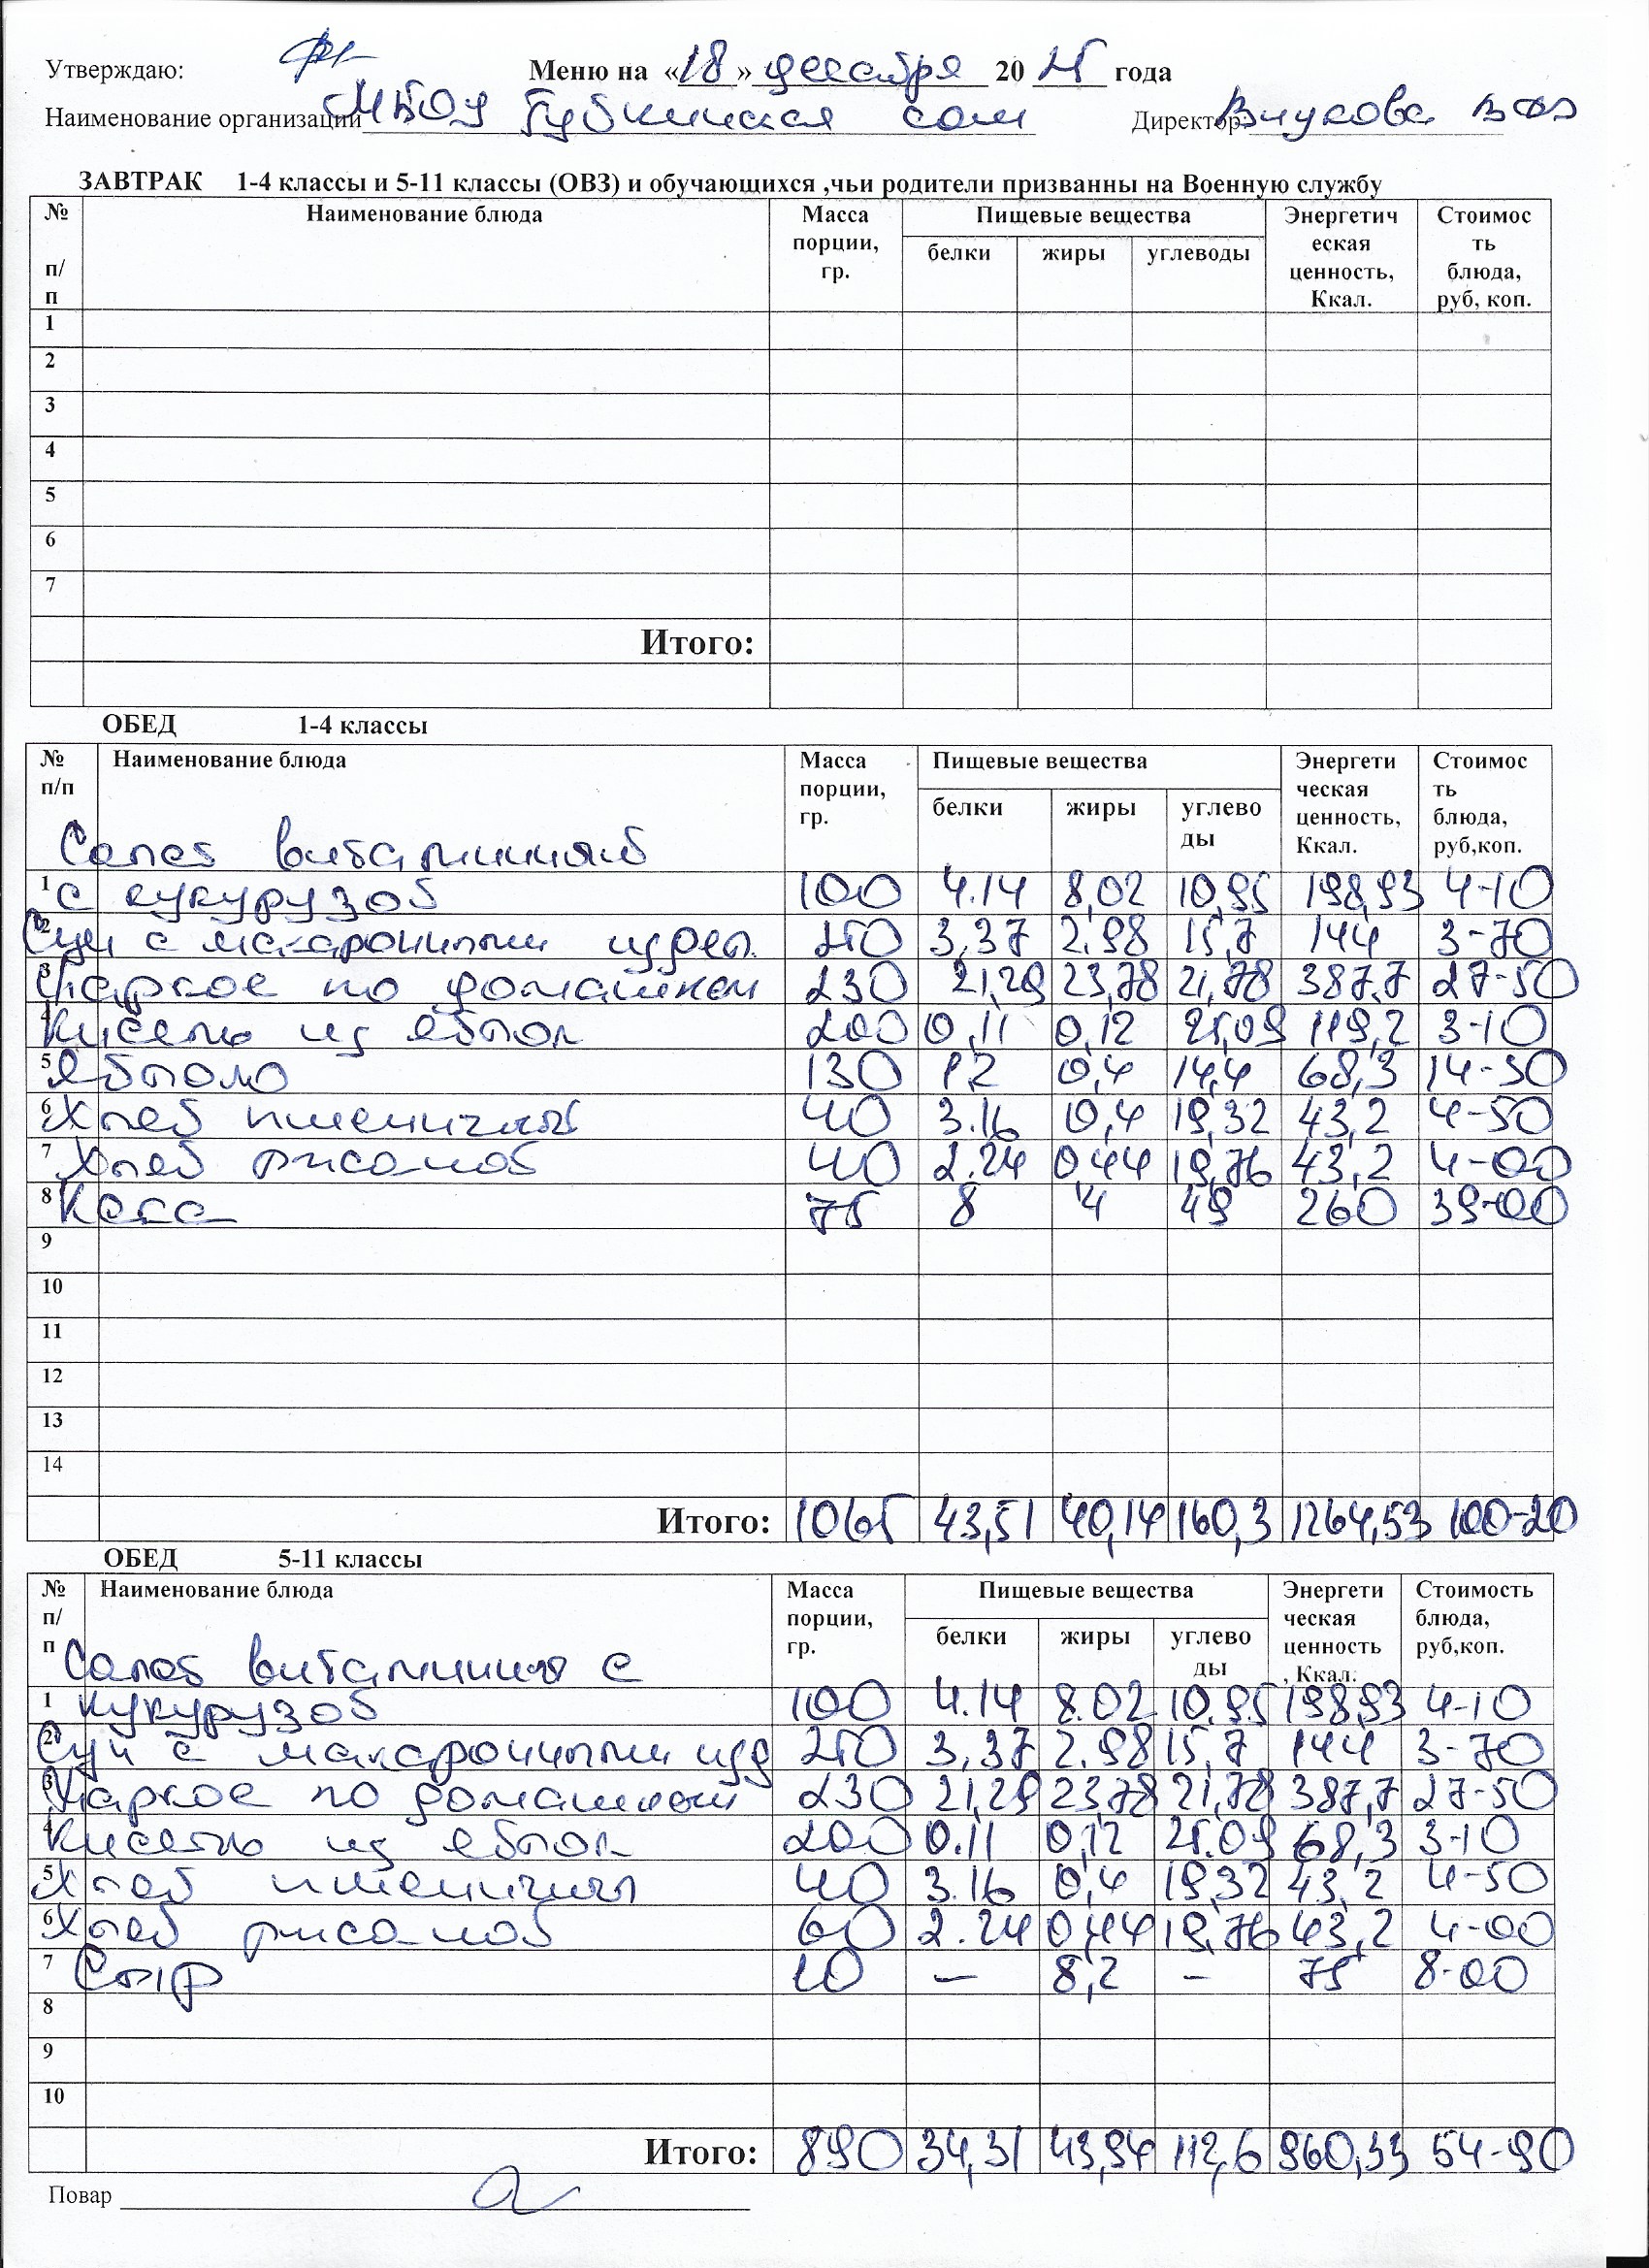 Утверждаю: Меню на «18» декабря 2025 года
Наименование организации МБОУ Губкинская сош Директор: Внукова
ЗАВТРАК 1-4 классы и 5-11 классы (ОВЗ) и обучающихся ,чьи родители призванны на Военную службу
№ п/п Наименование блюда Масса порции, гр. Пищевые вещества Энергетическая ценность, Ккал. Стоимость блюда, руб, коп.
белки жиры углеводы
1
2
3
4
5
6
7
Итого:
ОБЕД 1-4 классы
№ п/п Наименование блюда Масса порции, гр. Пищевые вещества Энергетическая ценность, Ккал. Стоимость блюда, руб,коп.
белки жиры углеводы
Салат витаминный
1 с кукурузой 100 4.14 8,02 10,95 198,93 4-10
2 Суп с макаронными издел. 250 3,37 2.98 15,7 144 3-70
3 Жаркое по домашнем 230 21,29 23,78 21,78 387,7 27-50
4 Кисель из яблок 200 0,11 0,12 25,09 119,2 3-10
5 Яблоко 130 1,2 0,4 14,4 68,3 14-30
6 Хлеб пшеничный 40 3.16 0,4 19,32 43,2 4-50
7 Хлеб ржаной 40 2.24 0,44 19,76 43,2 4-00
8 75 8 4 49 260 39-00
9
10
11
12
13
14
Итого: 1065 43,51 40,14 160,3 1264,53 100-20
ОБЕД 5-11 классы
№ п/п Наименование блюда Масса порции, гр. Пищевые вещества Энергетическая ценность, Ккал. Стоимость блюда, руб,коп.
белки жиры углеводы
Салат витаминный с
1 кукурузой 100 4.14 8.02 10,95 198,93 4-10
2 Суп с макаронными изд 250 3,37 2.98 15,7 144 3-70
3 Жаркое по домашнем 230 21,29 23,78 21,78 387,7 27-50
4 Кисель из яблок 200 0.11 0,12 25.09 68,3 3-10
5 Хлеб пшеничный 40 3.16 0,4 19,32 43,2 4-50
6 Хлеб ржаной 60 2.24 0,44 19,76 43,2 4-00
7 Сыр 10 – 8,2 – 75 8-00
8
9
10
Итого: 890 34,31 43,94 112,6 960,33 54-90
Повар